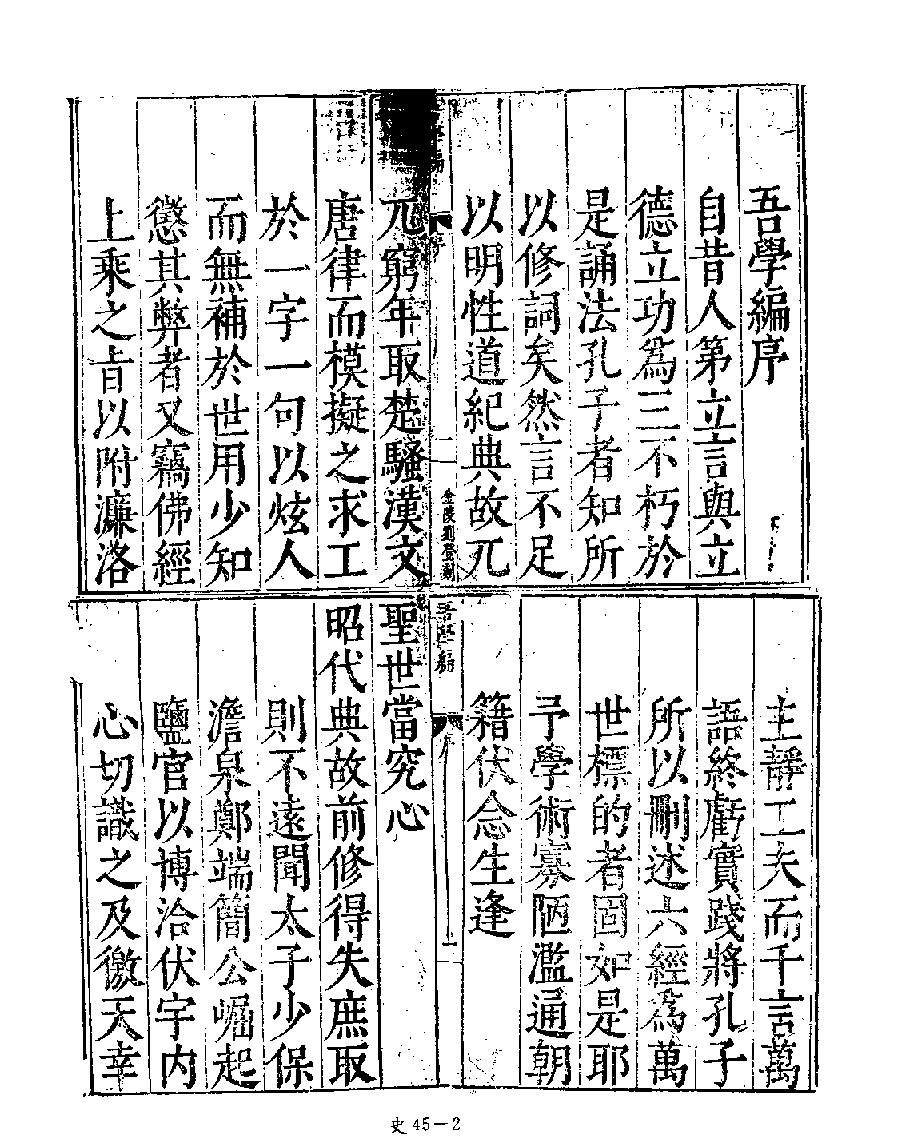 吾學編序
自昔人第立言與立
德立功爲三不朽於
是誦法孔子者知所
以修詞矣然言不足
以明性道紀典故兀
序
一
兀窮年取楚騷漢文
唐律而模擬之求工
於一字一句以炫人
而無補於世用少知
懲其弊者又竊佛經
上乘之旨以附濂洛
主靜工夫而千言萬
語終虧實踐將孔子
所以刪述六經爲萬
世標的者固如是耶
予學術寡陋濫通朝
籍伏念生逢
吾學編
序
聖世當究心
昭代典故前修得失庶取
則不遠聞太子少保
澹泉鄭端簡公崛起
鹽官以博洽伏宇内
心切識之及徼天幸
史 45－2